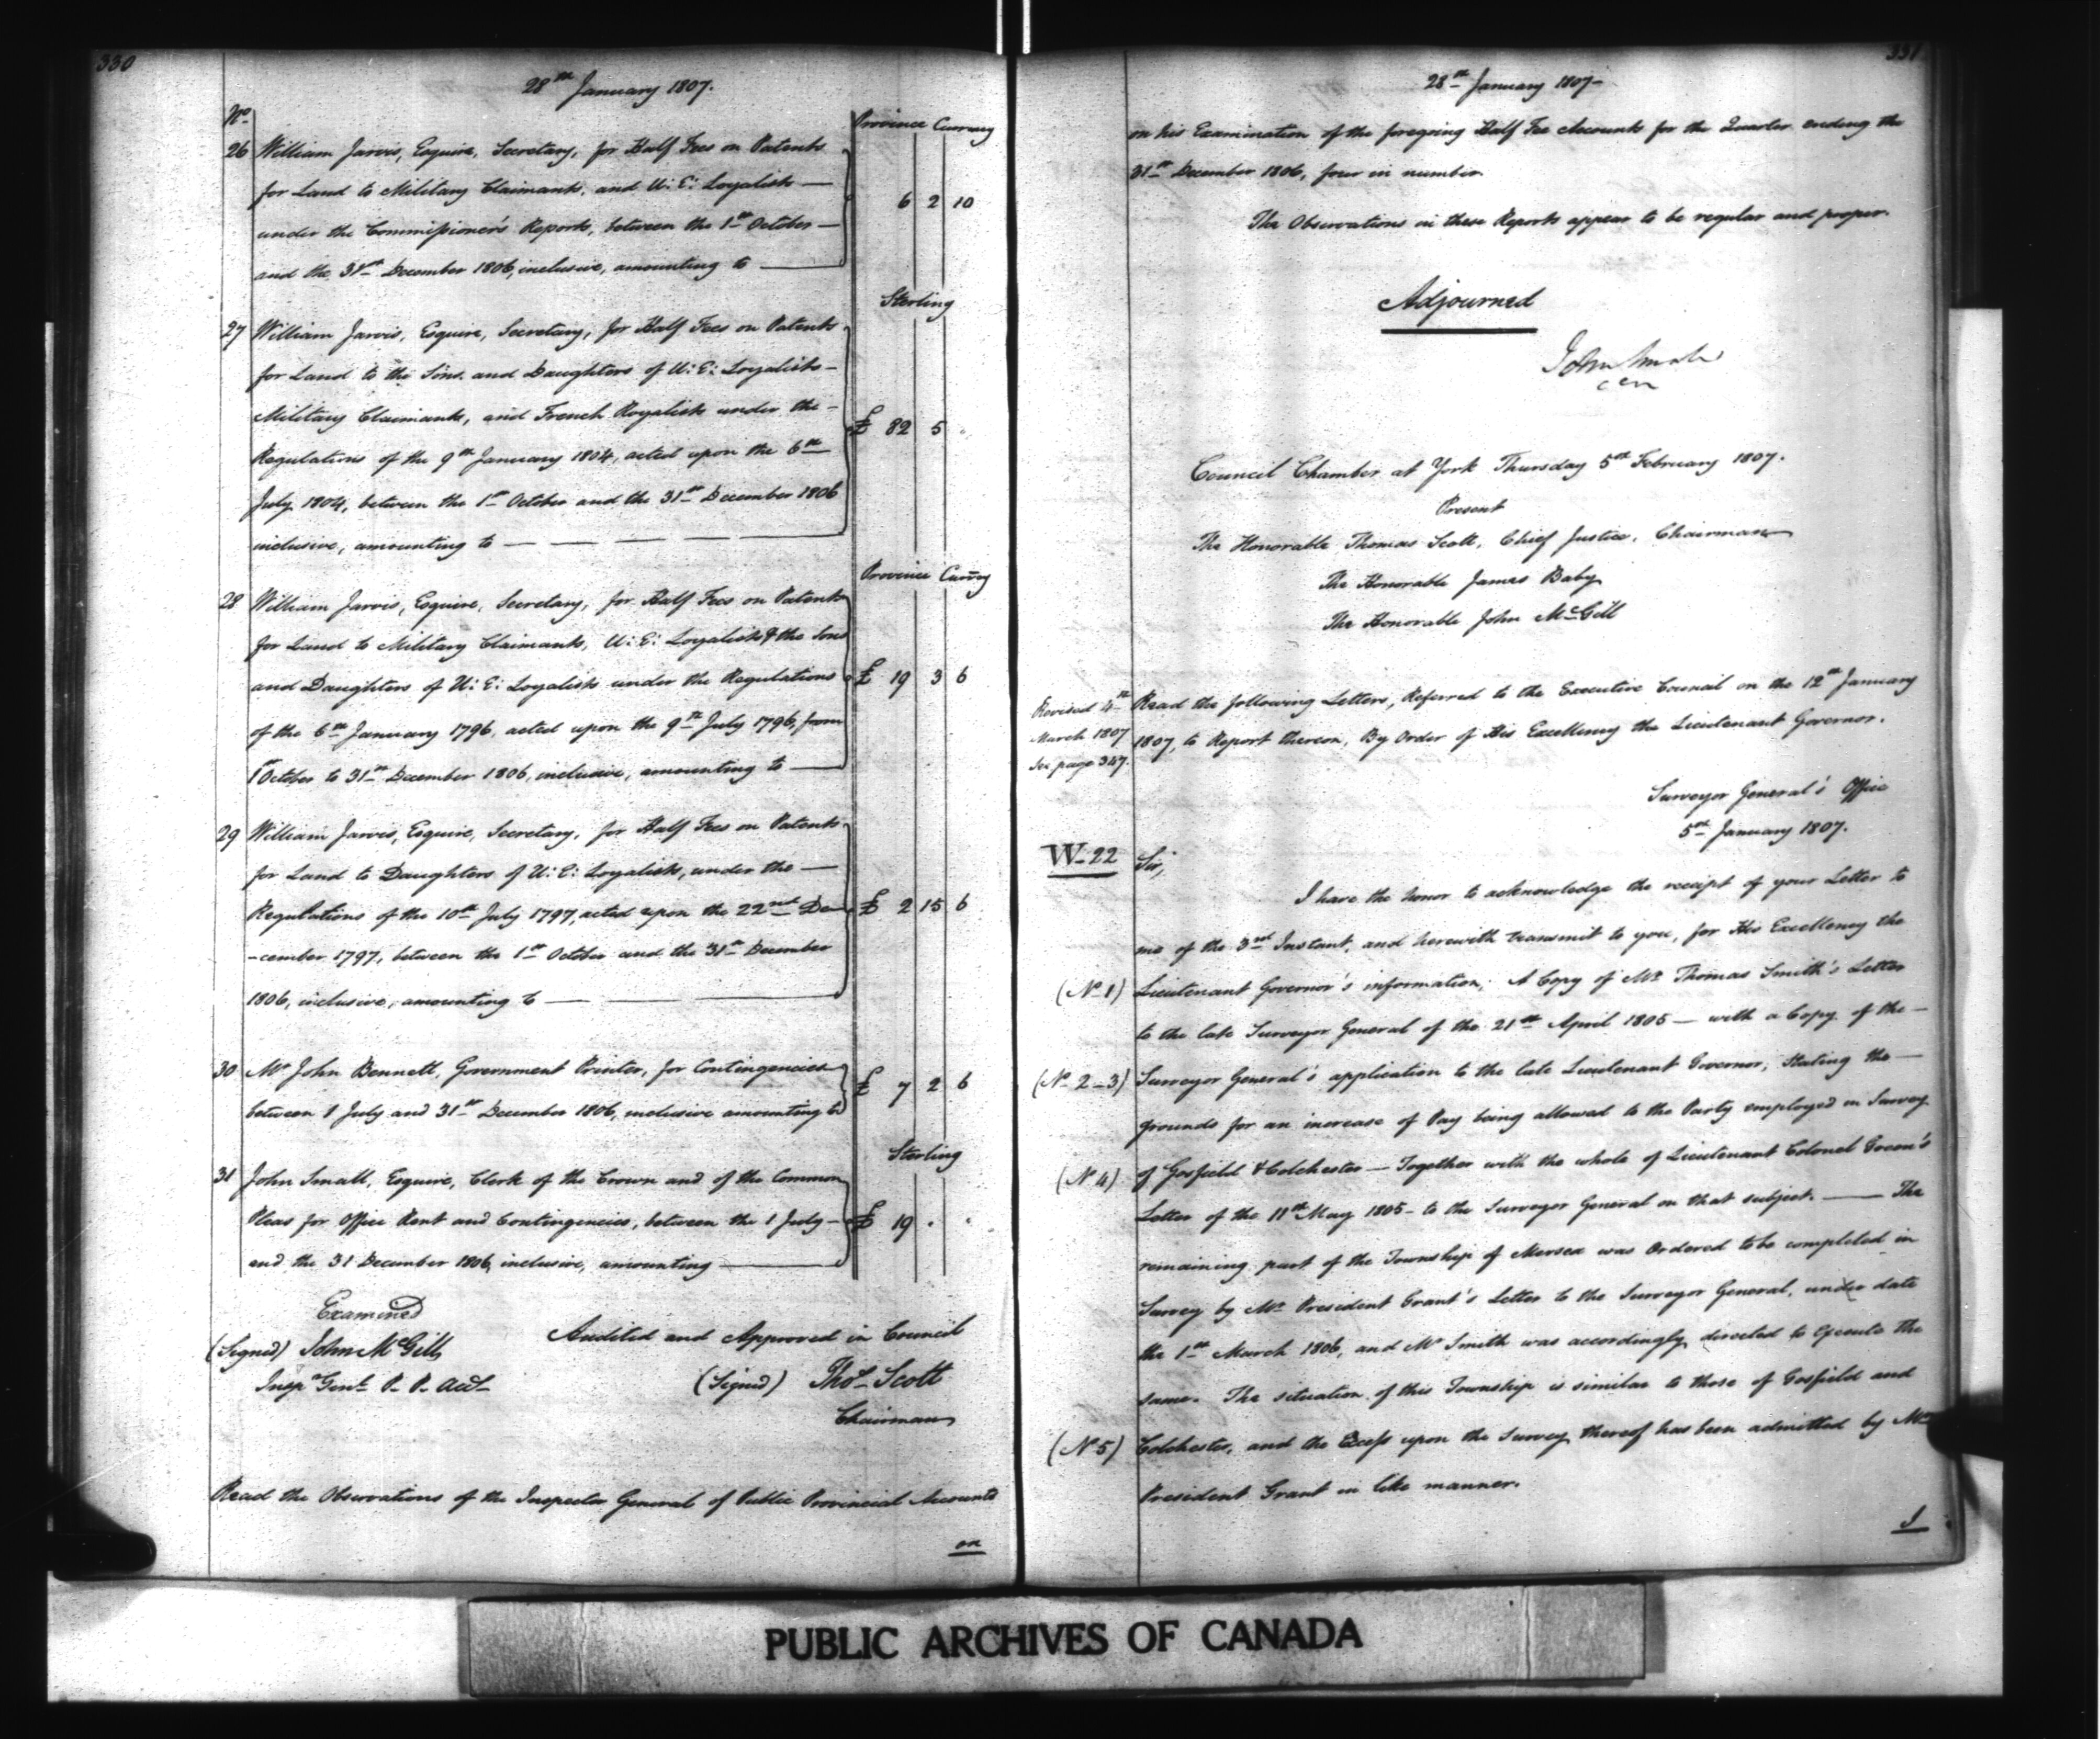 330
28th January 1807.
No
Province Currency
26 William Jarvis, Esquire, Secretary, for Half Fees on Patents
for Land to Military Claimants, and U: E: Loyalists —
under the Commissioner's Reports, between the 1st October —
and the 31st December 1806, inclusive, amounting to — 6 2 10
Sterling
27 William Jarvis, Esquire, Secretary, for Half Fees on Patents
for Land to the Sons and Daughters of U: E: Loyalists —
Military Claimants, and French Royalists under the —
Regulations of the 9th January 1804, acted upon the 6th
July 1804, between the 1st October and the 31st December 1806
inclusive, amounting to — — — — £ 82 5 "
Province Curr̄y
28 William Jarvis, Esquire, Secretary, for Half Fees on Patents
for Land to Military Claimants, U: E: Loyalists & the Sons
and Daughters of U: E: Loyalists under the Regulations
of the 6th January 1796, acted upon the 9th July 1796, from
1st October to 31st December 1806, inclusive, amounting to — £ 19 3 6
29 William Jarvis, Esquire, Secretary, for Half Fees on Patents
for Land to Daughters of U: E: Loyalists, under the —
Regulations of the 10th July 1797, acted upon the 22nd De-
-cember 1797, between the 1st October and the 31st December
1806, inclusive, amounting to — — £ 2 15 6
30 Mr John Bennett, Government Printer, for Contingencies
between 1 July and 31st December 1806, inclusive amounting to £ 7 2 6
Sterling
31 John Small, Esquire, Clerk of the Crown and of the Common
Pleas for Office Rent and Contingencies, between the 1 July —
and the 31 December 1806, inclusive, amounting — £ 19 " "
Examined
(Signed) John McGill
Inspr Genl P. P. Acct
Audited and Approved in Council
(Signed) Thos Scott
Chairman
Read the Observations of the Inspector General of Public Provincial Accounts
on
331
28th January 1807 —
on his Examination of the foregoing Half Fee Accounts for the Quarter ending the
31st December 1806, four in number.
The Observations in these Reports appear to be regular and proper.
Adjourned
John Small
CEC
Council Chamber at York Thursday 5th February 1807.
Present
The Honorable Thomas Scott, Chief Justice, Chairman
The Honorable James Baby
The Honorable John McGill
Revised 4th
March 1807
See page 347.
Read the following Letters, Referred to the Executive Council on the 12th January
1807, to Report thereon, By Order of His Excellency the Lieutenant Governor.
Surveyor General's Office
5th January 1807.
W-22 Sir,
I have the honor to acknowledge the receipt of your Letter to
me of the 3rd Instant, and herewith transmit to you, for His Excellency the
(No 1) Lieutenant Governor's information; A Copy of Mr Thomas Smith's Letter
to the late Surveyor General of the 21st April 1805 — with a Copy of the —
(No 2-3) Surveyor General's application to the late Lieutenant Governor, Stating the —
grounds for an increase of Pay being allowed to the Party employed on Survey
(No 4) of Gosfield & Colchester — Together with the whole of Lieutenant Colonel Green's
Letter of the 11th May 1805 - to the Surveyor General on that subject. — The
remaining part of the Township of Mersea was Ordered to be completed in
Survey by Mr President Grant's Letter to the Surveyor General, under date
the 1st March 1806, and Mr Smith was accordingly directed to execute the
same. The situation of this Township is similar to those of Gosfield and
(No 5) Colchester, and the Excess upon the Survey thereof has been admitted by Mr
President Grant in like manner.
I
PUBLIC ARCHIVES OF CANADA